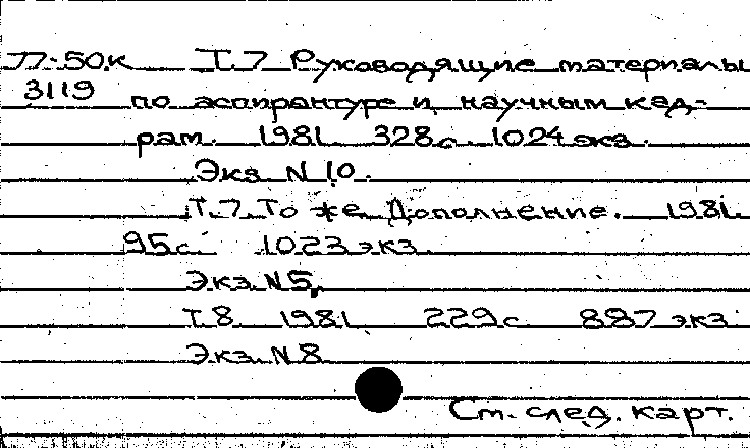 П7-50к Т.7 Руководящие материалы
3119 по аспирантуре и научным кад-
рам. 1981. 328с. 1024 экз.
Экз. N 10.
Т.7. То же. Дополнение. 1981.
95с. 1023 экз.
Экз. N 5.
Т.8. 1981. 229с. 887 экз.
Экз. N 8.
См. след. карт.